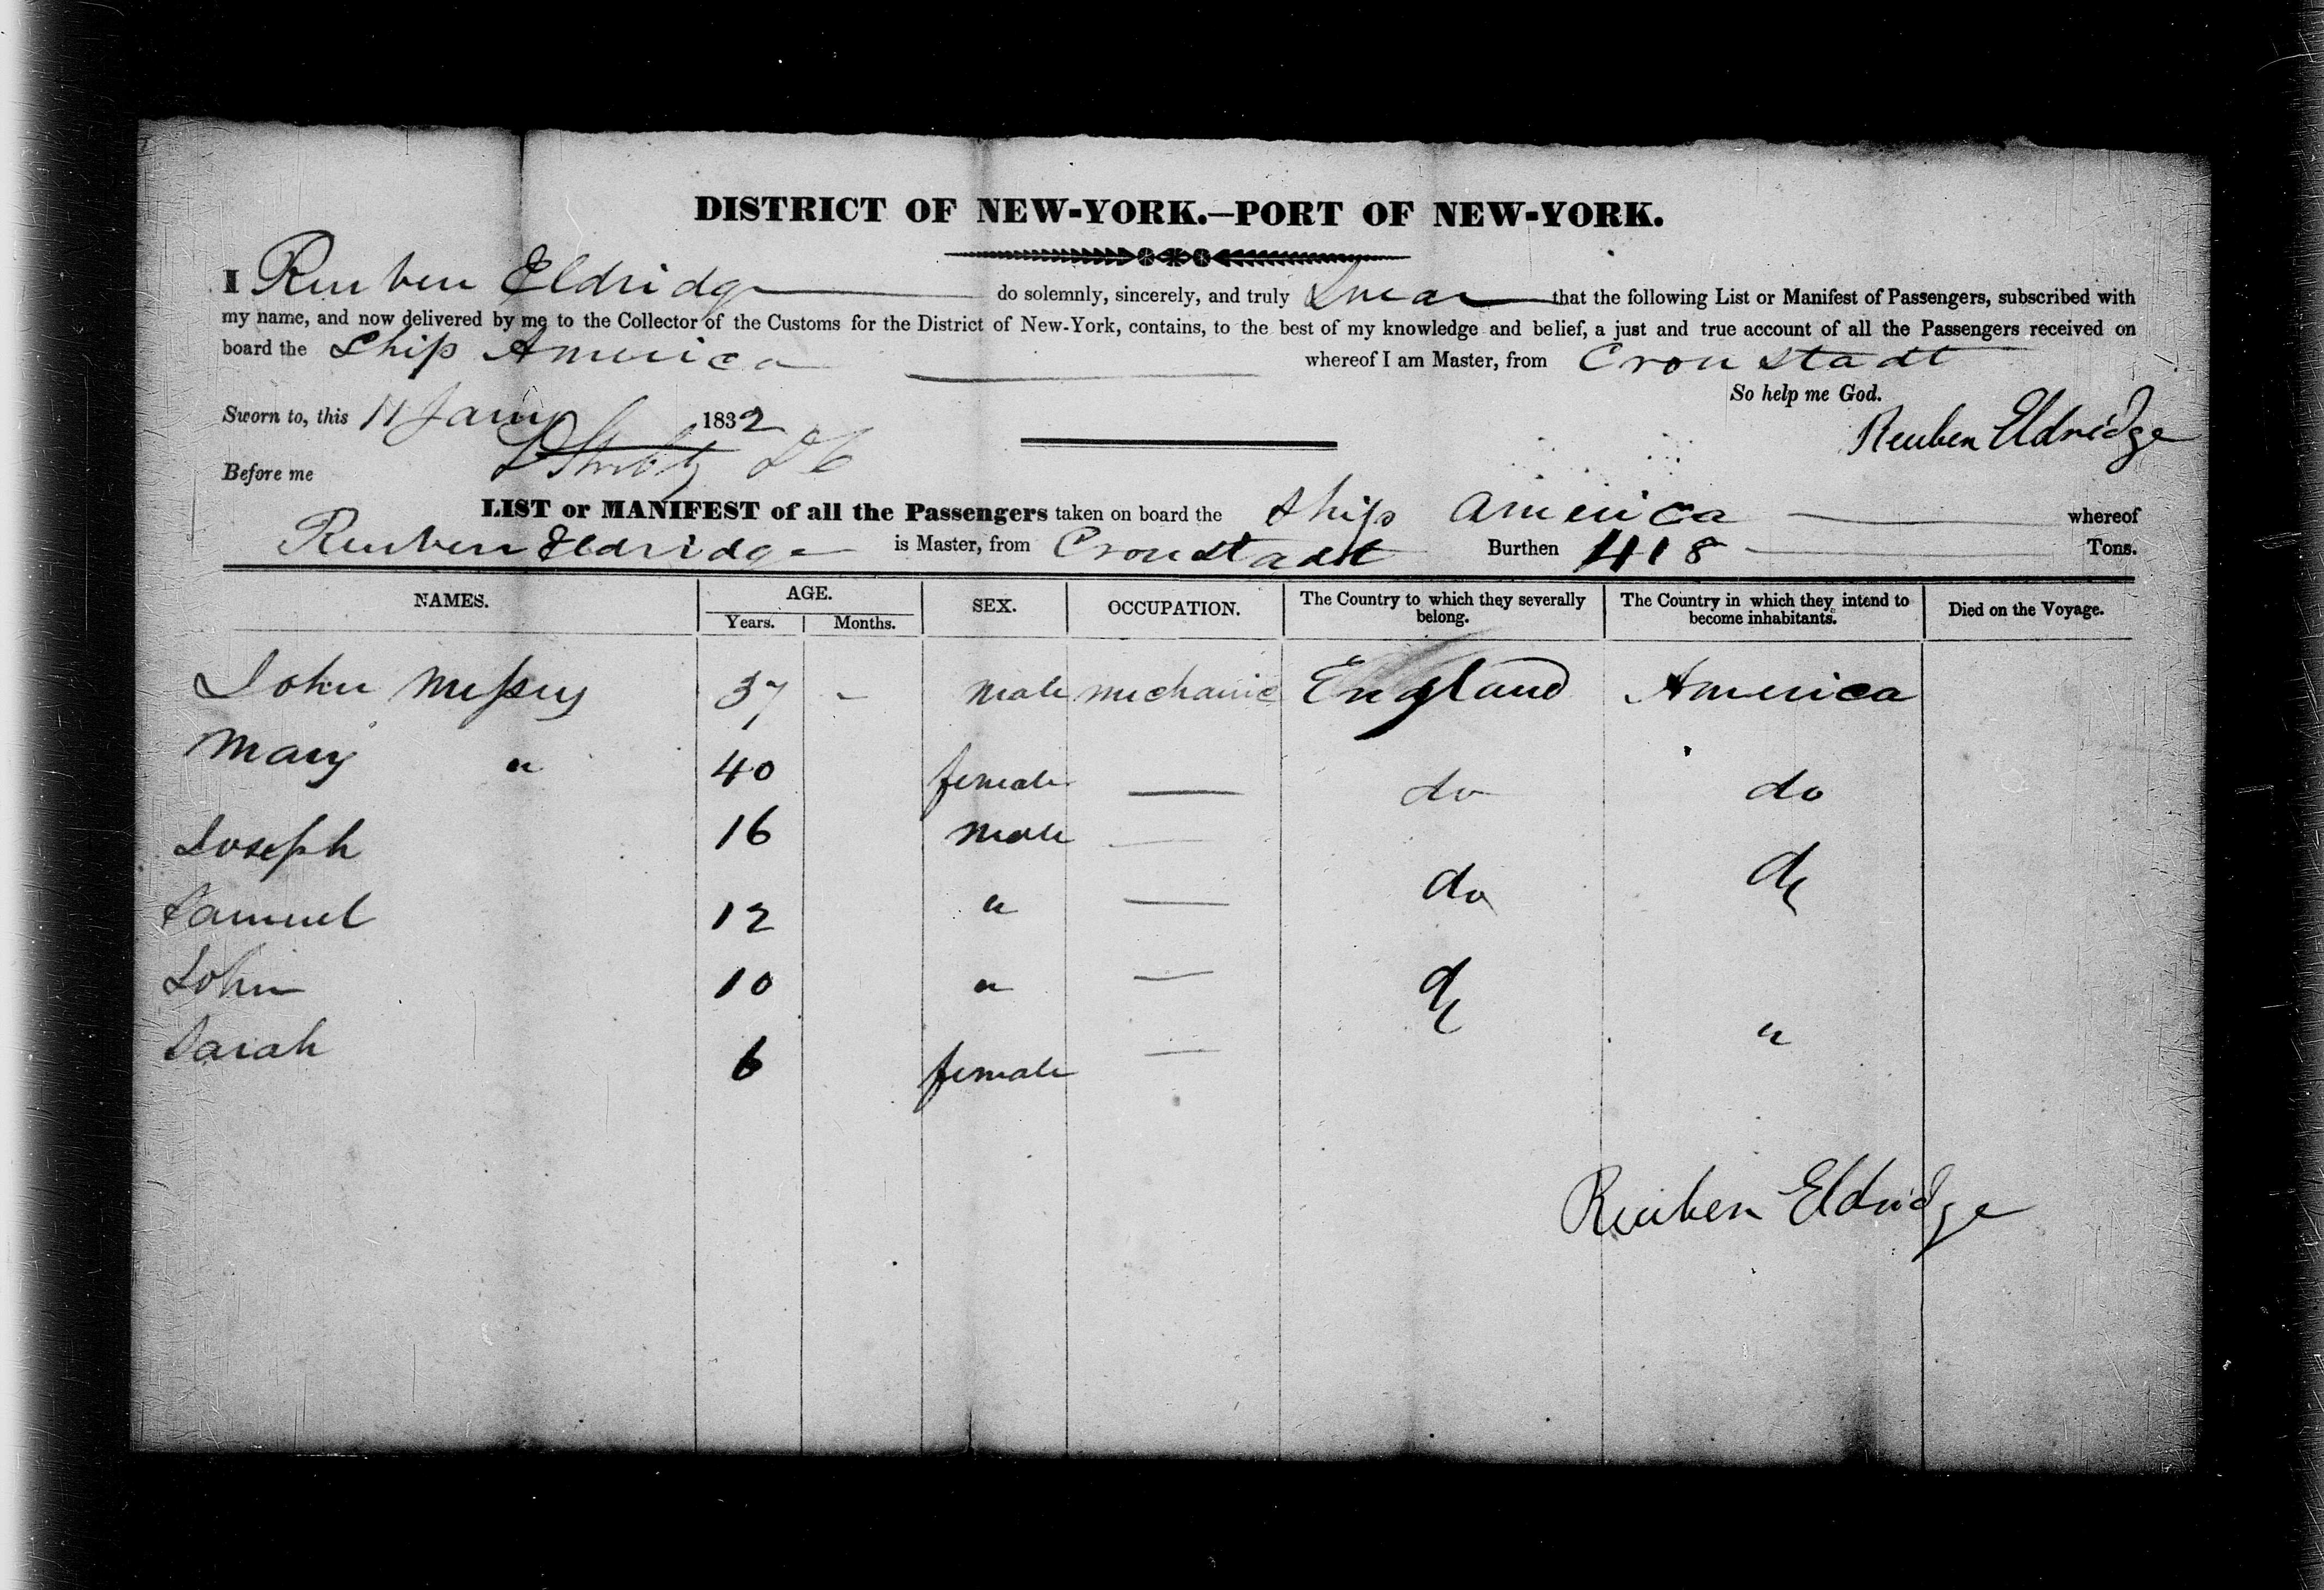 DISTRICT OF NEW-YORK.—PORT OF NEW-YORK.
I Reuben Eldridge do solemnly, sincerely, and truly Swear that the following List or Manifest of Passengers, subscribed with
my name, and now delivered by me to the Collector of the Customs for the District of New-York, contains, to the best of my knowledge and belief, a just and true account of all the Passengers received on
board the Ship America whereof I am Master, from Cronstadt
So help me God.
Sworn to, this 11 Jany 1832
Reuben Eldridge
Before me
LIST or MANIFEST of all the Passengers taken on board the Ship America whereof
Reuben Eldridge is Master, from Cronstadt Burthen 418 Tons.
NAMES. AGE. Years. Months. SEX. OCCUPATION. The Country to which they severally belong. The Country in which they intend to become inhabitants. Died on the Voyage.
John 37 - male mechanic England America
Mary " 40 female — do do
Joseph 16 male — do do
Samuel 12 " —
John 10 " — do
Sarah 6 female — "
Reuben Eldridge